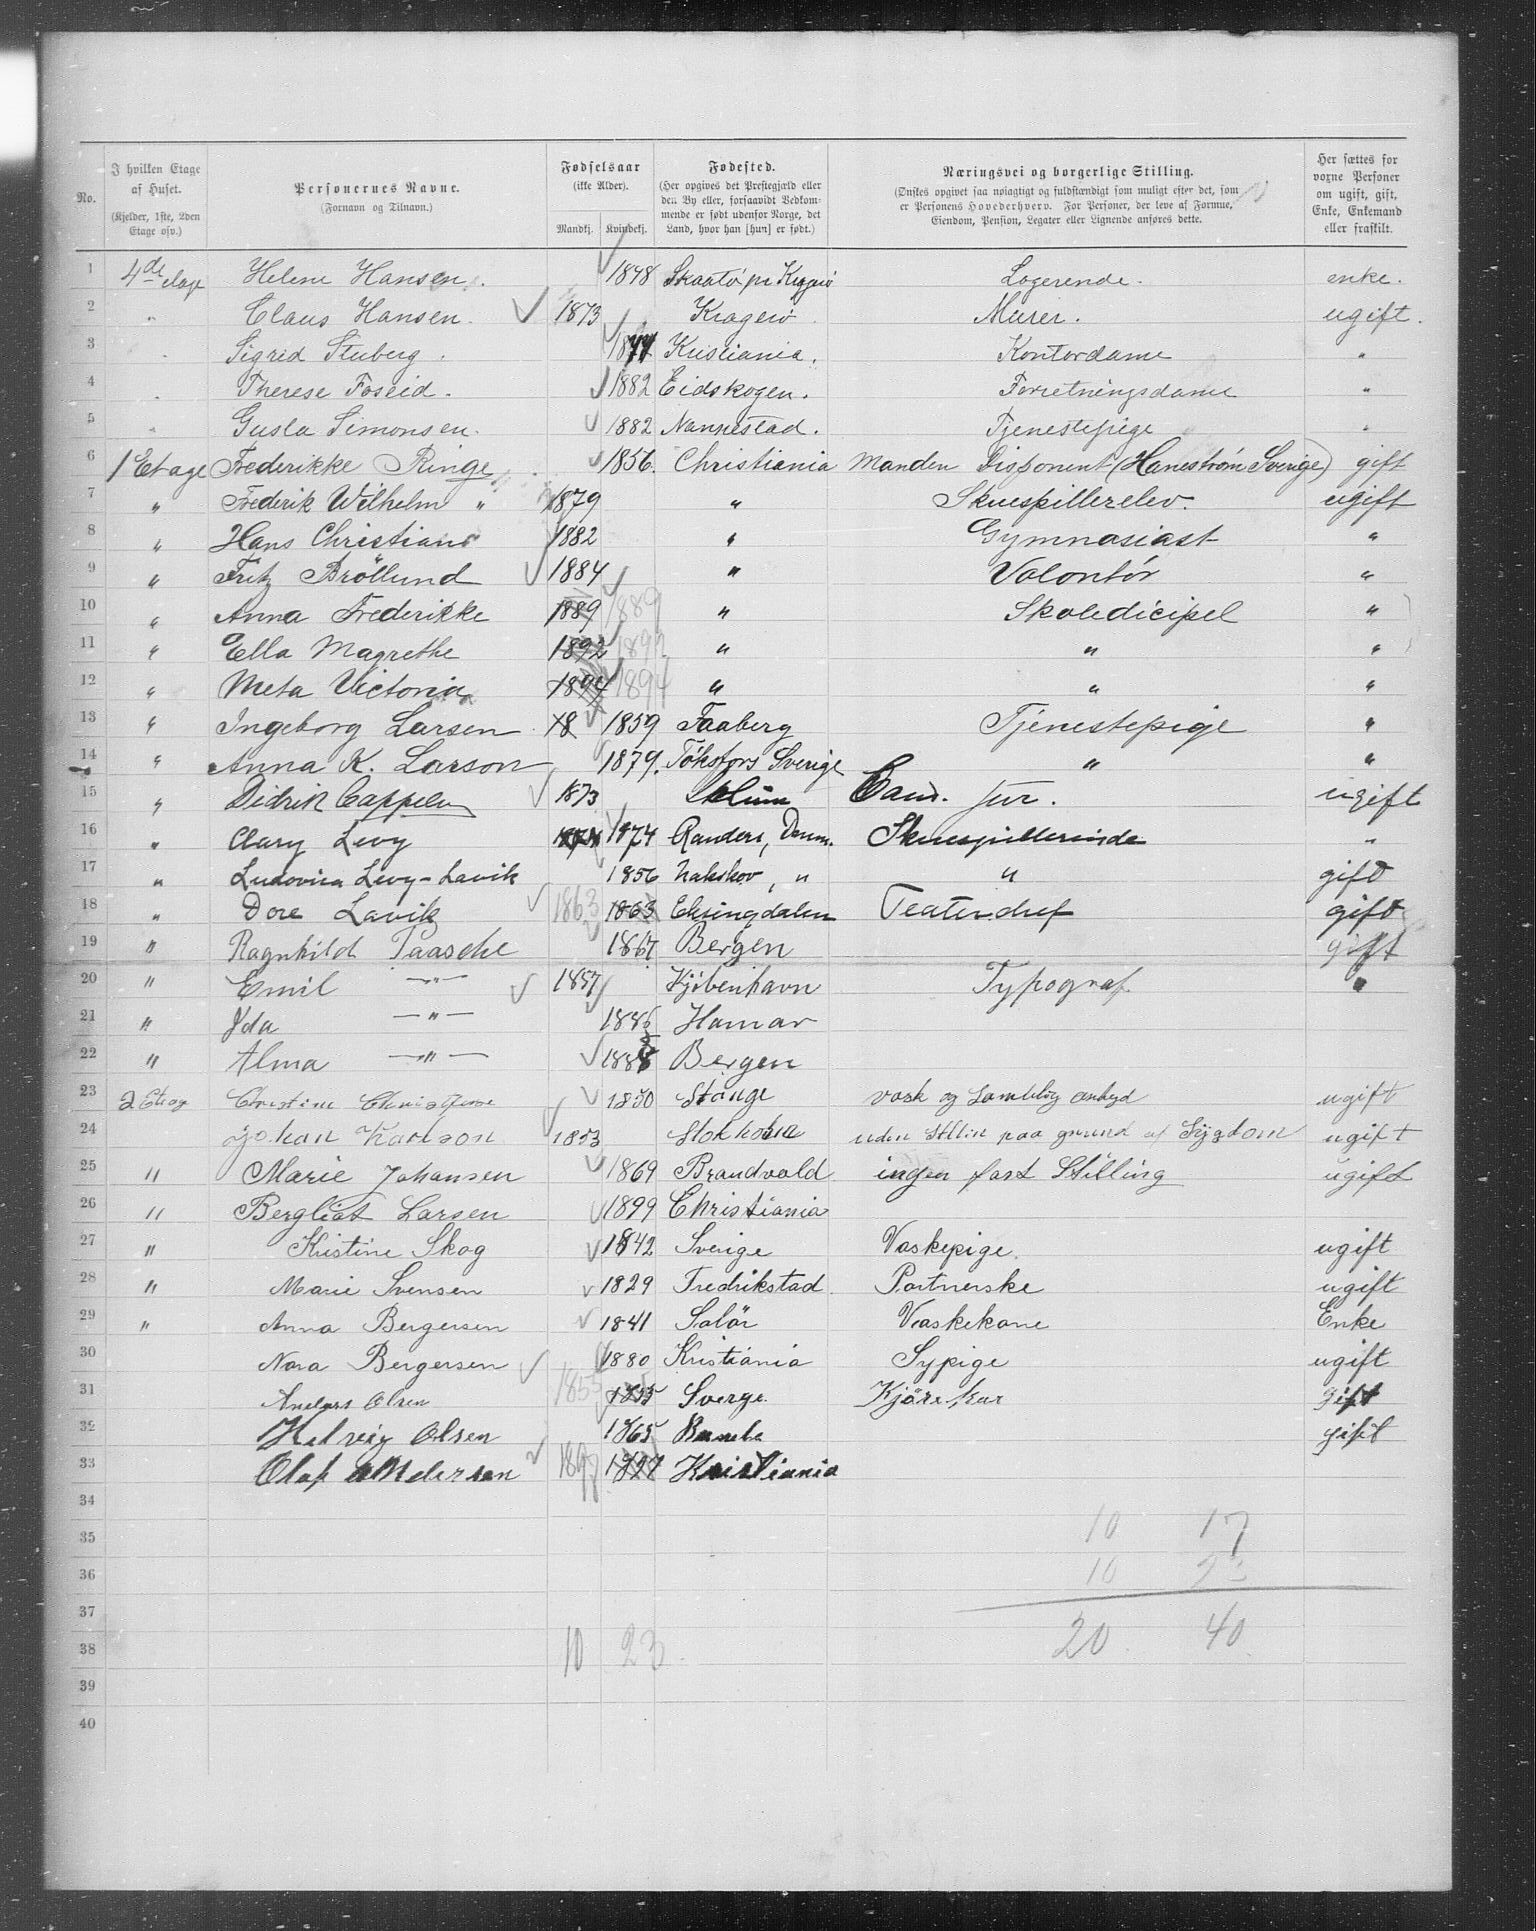 No.
I hvilken Etage af Huset.
(Kjelder, 1ste, 2den Etage osv.)
Personernes Navne.
(Fornavn og Tilnavn.)
Fødselsaar
(ikke Alder).
Mandkj. Kvindekj.
Fødested.
(Her opgives det Prestegjæld eller den By eller, forsaavidt Vedkommende er født udenfor Norge, det Land, hvor han [hun] er født.)
Næringsvei og borgerlige Stilling.
(Ønskes opgivet saa nøiagtigt og fuldstændigt som muligt efter det, som er Personens Hovederhverv. For Personer, der leve af Formue, Eiendom, Pension, Legater eller Lignende anføres dette.
Her sættes for voxne Personer om ugift, gift, Enke, Enkemand eller fraskilt.
1 4de etage Helene Hansen. 1848 Skaatö pr Kragerö Logerende. enke.
2 " Claus Hansen. 1873 Kragerö Murer. ugift.
3 " Sigrid Stuberg. Kristiania. Kontordame "
4 " Therese Foseid. 1882 Eidskogen. Forretningsdame "
5 " Gusta Simonsen. 1882 Nannestad. Tjenestepige "
6 1 Etage Frederikke Ringe 1856. Christiania Manden Disponent (Hanestrøm Sverige) gift
7 " Frederik Wilhelm " 1879 " Skuespillerelev. ugift
8 " Hans Christian 1882 " Gymnasiast "
9 " Fritz Bröllund 1884 " Volontör "
10 " Anna Frederikke 1889 1889 " Skoledicipel "
11 " Ella Magrethe 1892 1892 " " "
12 " Meta Victoria 1894 1894 " " "
13 " Ingeborg Larsen 18 1859 Faaberg Tjenestepige "
14 " Anna K. Larson 1879. Töksfors Sverige " "
15 " Didrik Cappelen 1873 Cand. jur. ugift
16 " Clary Levy 1874 1874 Randers, Danm. Skuespillerinde "
17 " Ludovica Levy-Lavik 1856 Nakskov, " " gift
18 " Dore Lavik 1863 1863 Eksingdalen Teaterchef gift
19 " Ragnhild Paasche 1867 Bergen gift
20 " Emil —"— 1857 Kjöbenhavn Typograf "
21 " Ida —"— 1886 Hamar
22 " Alma —"— 1888 Bergen
23 2 Etag Christine 1850 Stange vask og ugift
24 Johan Karlson 1853 uden paa grund af Sygdom ugift
25 " Marie Johansen 1869 Brandvold ingen fast Stilling ugift
26 " Bergliot Larsen 1899 Christiania
27 " Kristine Skog 1842 Sverige Vaskepige. ugift
28 " Marie Svensen 1829 Fredrikstad Portnerske ugift
29 " Anna Bergersen 1841 Solör Vaskekone Enke
30 Nora Bergersen 1880 Kristiania Sypige ugift
31 Anders Olsen 1855 1855 Sverge. Kjörekar gift
32 Helvig Olsen 1865 Bamble gift
33 Olaf Andersen 1897 1897 Kristiania
34
35 10 17
36 10 23
37
38 10 23 20 40
39
40